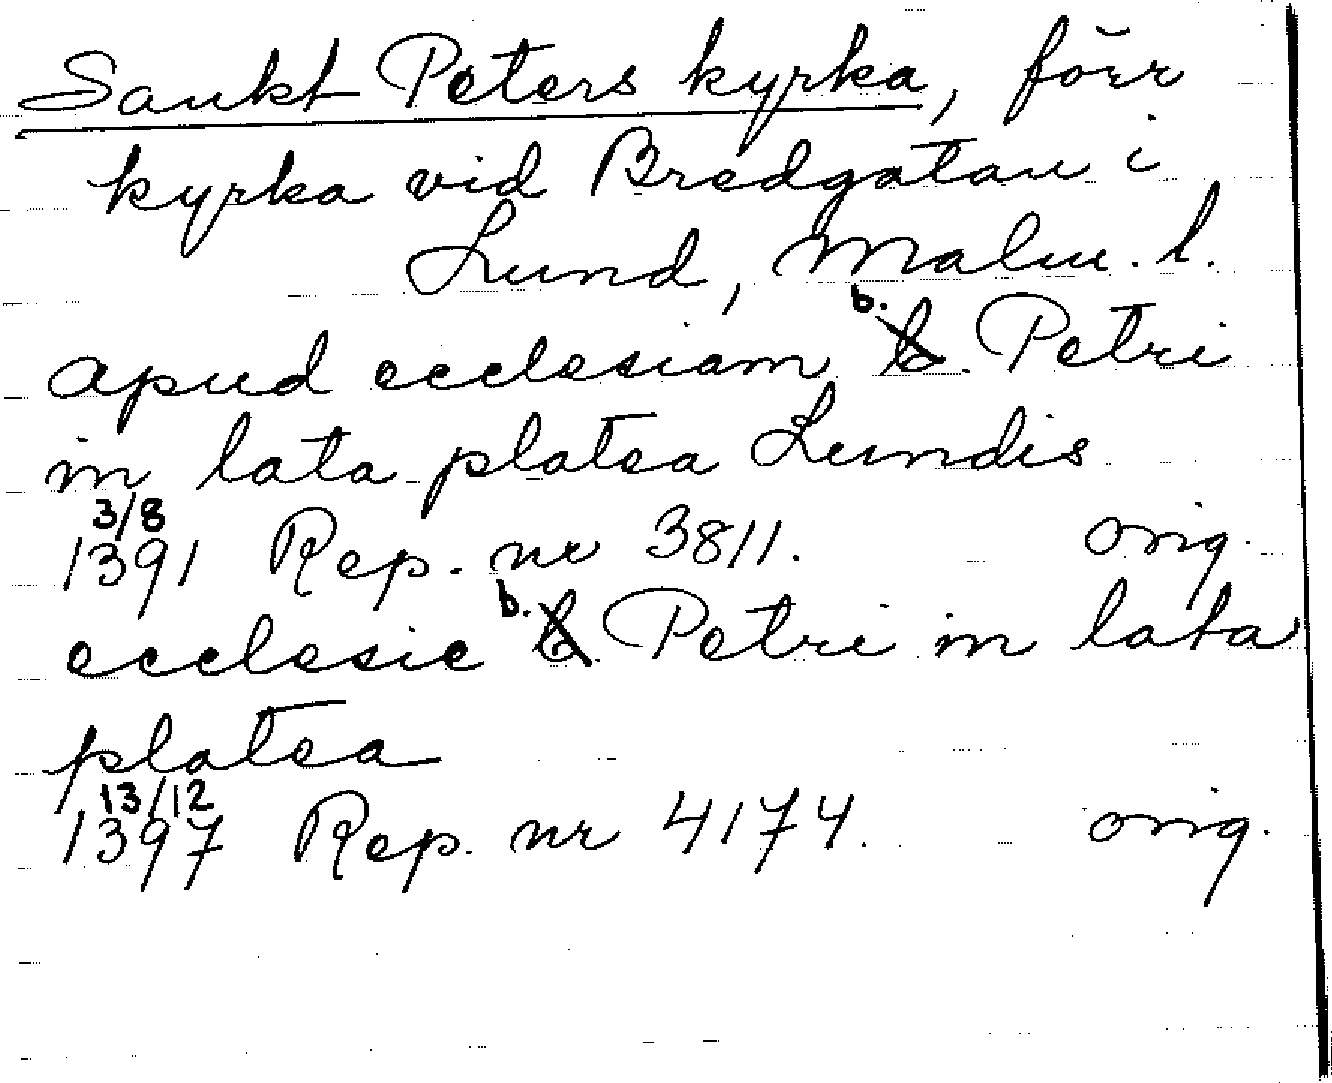 Sankt Peters kyrka, förr
kyrka vid Bredgatan i
Lund, Malm. l.
apud ecclesiam b. Petri
in lata platea Lundis
3/8
1391 Rep. nr 3811. orig.
ecclesie b. Petri in lata
platea
13/12
1397 Rep. nr 4174. orig.